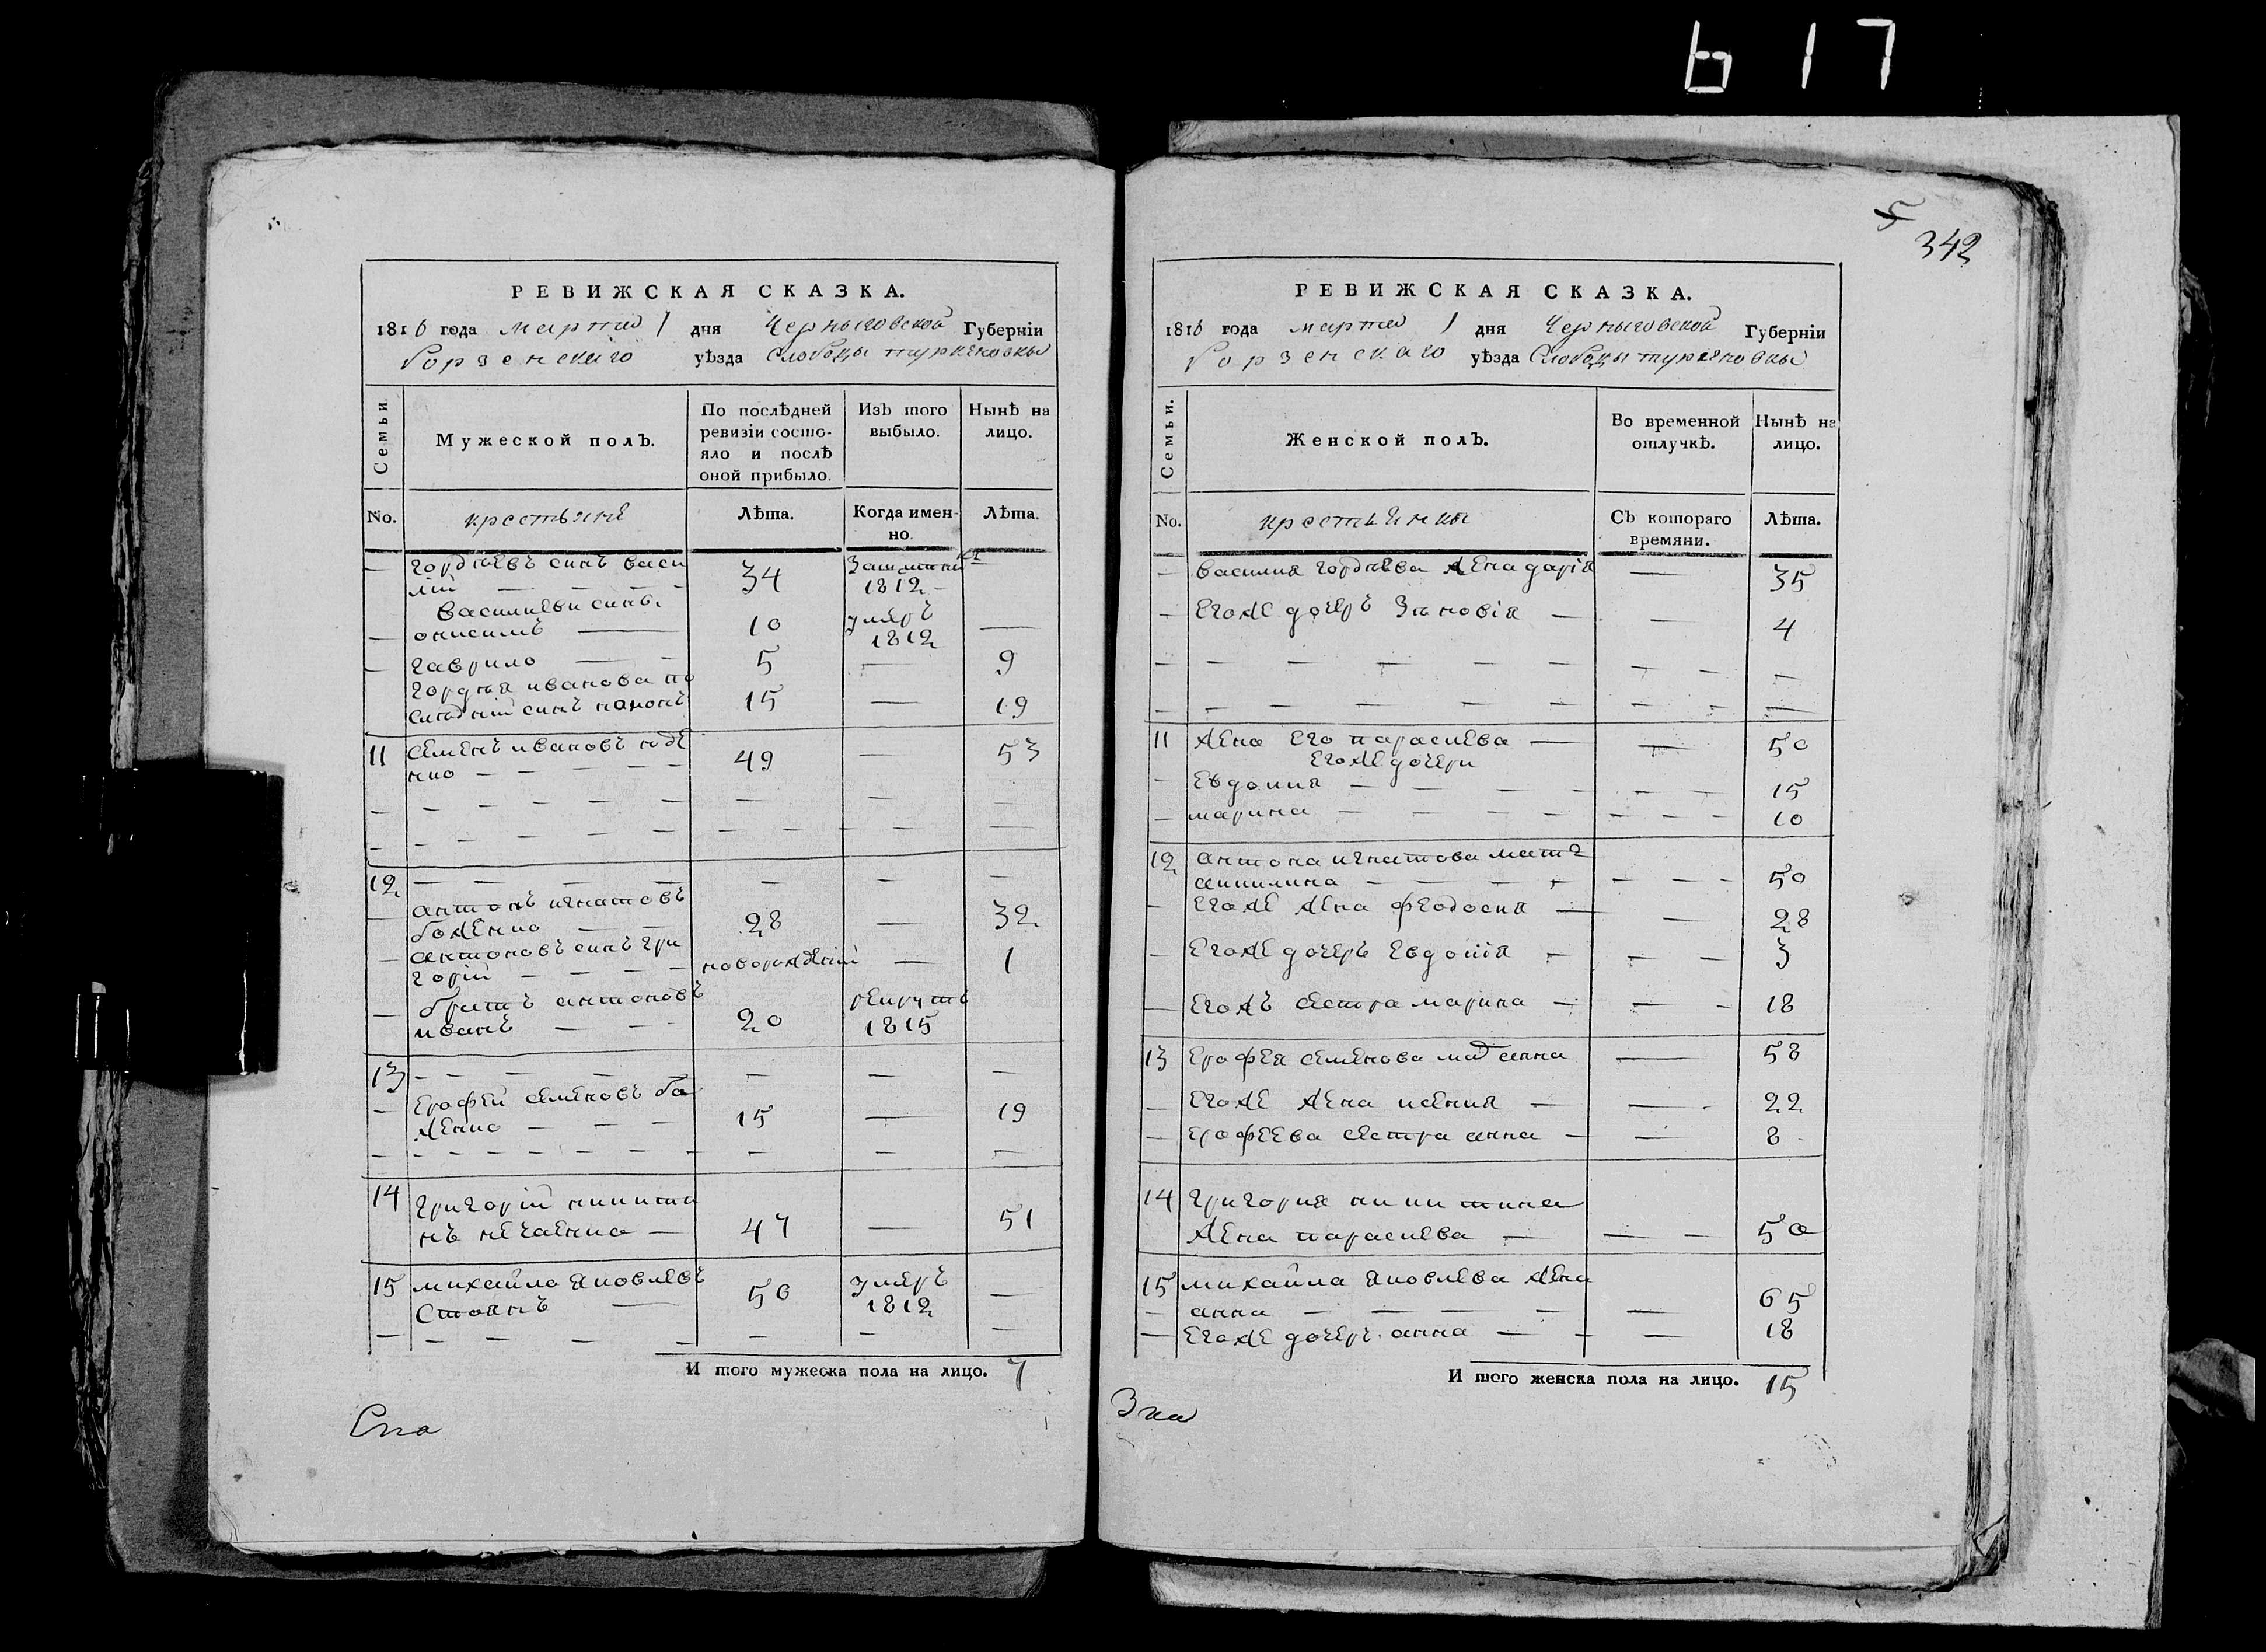 617
5
342
РЕВИЖСКАЯ СКАЗКА.
1816 года марта 1 дня Черниговской Губерніи
борзенскаго уѣзда Слободы
Семьи.
Мужеской полъ.
По послѣдней ревизіи состо-
яло и послѣ
оной прибыло.
Изъ того выбыло.
Нынѣ на лицо.
No.
крестьяне
Лѣта.
Когда имен-
но.
Лѣта.
— гордѣевъ синъ васи
лій — 34 1812 —
василиеви сини
— онисимъ — 10 умеръ 1812 —
— гаврило — 5 — 9
гордѣя иванова
синъ 15 — 19
11 семенъ ивановъ 49 — 53
12 — — — —
— антонъ игнатовъ
баженко — 28 — 32
— антоновъ синъ гри
горій — новорожденій — 1
— братъ антоновъ
иванъ — 20 рекрутъ 1815
13 — — — —
— ерофей семеновъ ба
женко — 15 — 19
14 григорій никити
нъ нечаенко — 47 — 51
15 михайло яковлевъ
Стоянъ — 50 умеръ 1812 —
И того мужеска пола на лицо. 7
РЕВИЖСКАЯ СКАЗКА.
1816 года марта 1 дня Черниговской Губерніи
борзенскаго уѣзда Слободы
Семьи.
Женской полъ.
Во временной отлучкѣ.
Нынѣ на лицо.
No.
крестьянки
Съ котораго времяни.
Лѣта.
— василия гордѣева жена дарія — 35
— егоже дочеръ Зѣновія — 4
11 жена его параскева — 50
егоже дочери
— евдокия — 15
— марина — 10
12 антона игнатова мать
акилина — 50
— егоже жена феодосия — 28
— егоже дочеръ евдокія — 3
— егожъ сестра марина — 18
13 ерофея семенова мат анна — 58
— егоже жена ксения — 22
— ерофеева сестра анна — 8
14 григория никитина
жена параскева — 50
15 михайла яковлева жена
— анна — 65
— егоже дочеръ анна — 18
И того женска пола на лицо. 15